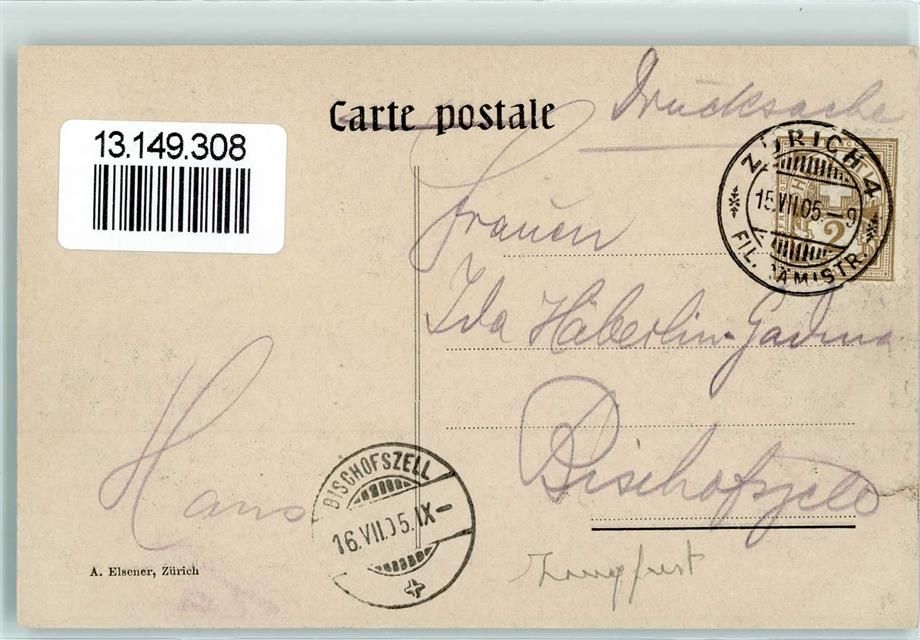 Carte postale
Drucksache
13.149.308
ZÜRICH 4
15.VII.05.–9
FIL. RÄMISTR.
2
Frauen
Ida Häberlin-
Bischofszell
Hans
BISCHOFSZELL
16.VII.05.IX–
A. Elsener, Zürich